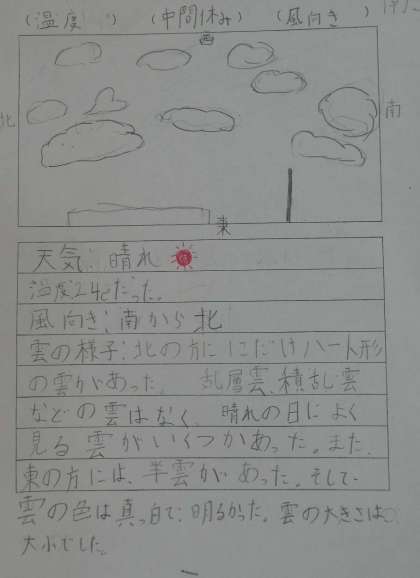 (温度 ) (中間休み) (風向き )
西
北
南
東
天気:晴れ
温度24℃だった。
風向き:南から北
雲の様子:北の方にこだけハート形
の雲があった。 乱層雲、積乱雲
などの雲はなく、晴れの日によく
見る雲がいくつかあった。また、
東の方には、羊雲があった。そして、
雲の色は真っ白で、明るかった。雲の大きさは
大小でした。